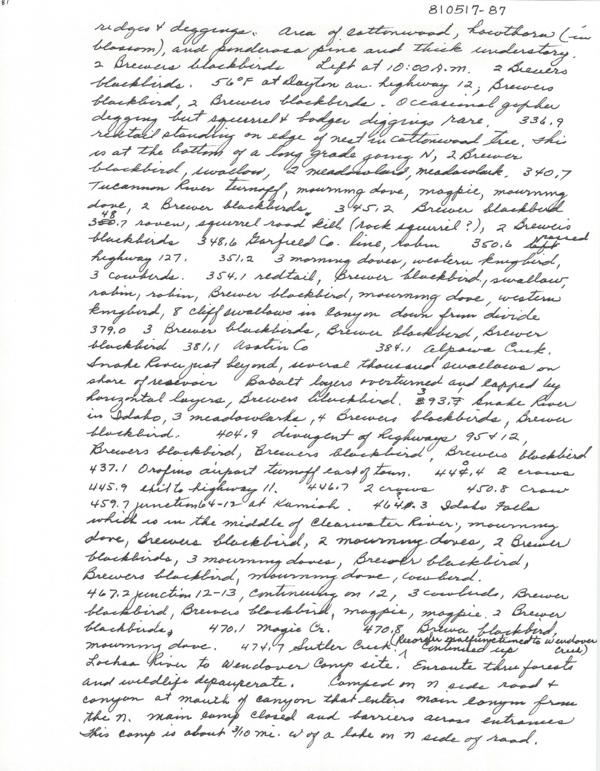 81
810517-87
ridges & diggings. Area of cottonwood, hawthorn (in
blossom), and ponderosa pine and thick understory.
2 Brewers blackbirds Left at 10:00 A.M. 2 Brewers
blackbirds. 56°F at Dayton on highway 12, Brewers
blackbird, 2 Brewers blackbirds. Occasional gopher
digging but squirrel & badger diggings rare. 336.9
redtail standing on edge of nest in cottonwood tree. This
is at the bottom of a long grade going N, 2 Brewer
blackbird, swallow, 2 meadowlark, meadowlark. 340.7
Tucannon River turnoff, mourning dove, magpie, mourning
dove, 2 Brewer blackbirds, 345.2 Brewer blackbird
48
350.7 raven, squirrel road kill (rock squirril?), 2 Brewers
blackbirds 348.6 Garfield Co. line, robin 350.6 left
highway 127. 351.2 3 morning doves, western kingbird,
3 cowbirds. 354.1 redtail, Brewer blackbird, swallow,
robin, robin, Brewer blackbird, mourning dove, western
kingbird, 8 cliff swallows in canyon down from divide
379.0 3 Brewer blackbirds, Brewer blackbird, Brewer
blackbird 381.1 Asotin Co 384.1 Alpowa Creek.
Snake River just beyond, several thousand swallows on
shore of resevoir Basalt layers overturned and lapped by
horizontal layers, Brewers blackbird. 393.7 Snake River
in Idaho, 3 meadowlarks, 4 Brewers blackbirds, Brewer
blackbird. 404.9 divergent of highways 95 & 12,
Brewers blackbird, Brewers blackbird, Brewers blackbird
437.1 Orofino airport turnoff east of town. 440.4 2 crows
445.9 exit to highway 11. 446.7 2 crows 450.8 Crow
459.7 junction 64-12 at Kamiah. 464.3 Idaho Falls
which is in the middle of Clearwater River, mourning
dove, Brewers blackbird, 2 mourning doves, 2 Brewer
blackbirds, 3 mourning doves, Brewer blackbird,
Brewers blackbird, mourning dove, cowbird.
467.2 junction 12-13, continuing on 12, 3 cowbirds, Brewer
blackbird, Brewers blackbird, magpie, magpie 2 Brewer
blackbirds, 470.1 Magic Cr. 470.8 Brewer blackbird,
mourning dove. 474.7 Sutler Creek. (Recorder malfunctioned to Wendover Creek) Continued up
Lochsa River to Wendover Camp site. Enroute thru forests
and wildlife depauperate. Camped on N side road &
canyon at mouth of canyon that enters main canyon from
the N. main camp closed and barriers across entrances
This camp is about 3/10 mi. W of a lake on N side of road.